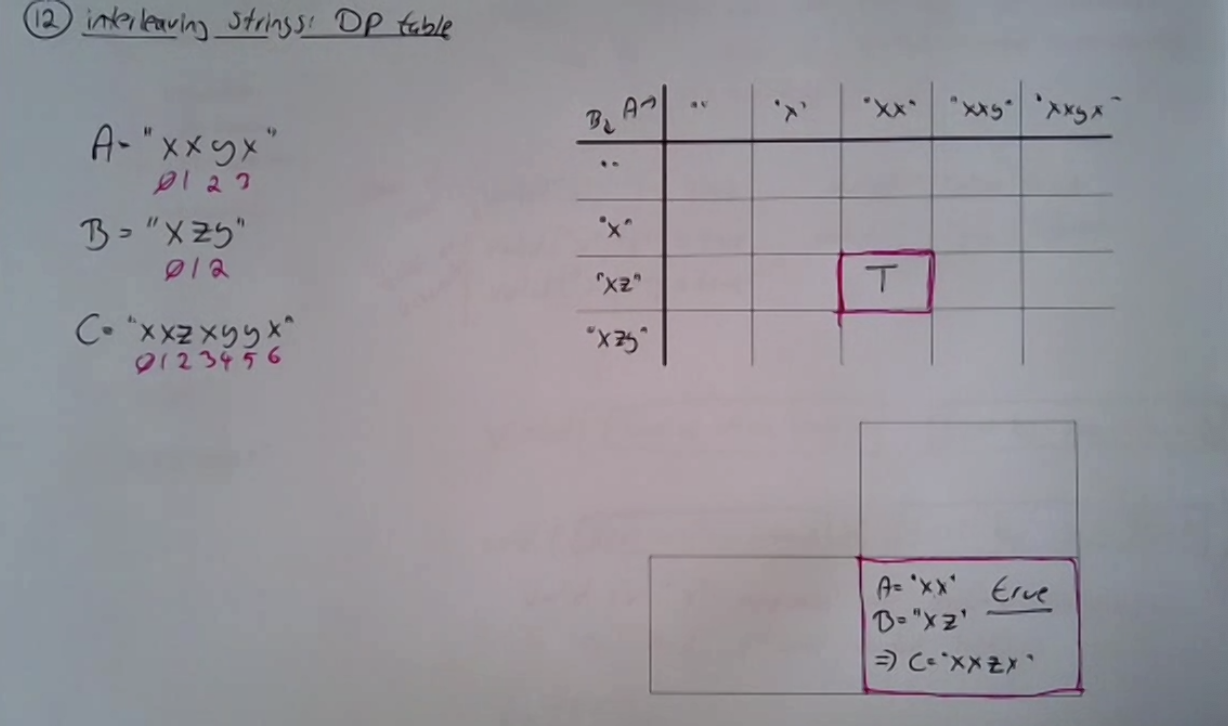 12 interleaving strings: DP table
A = "xxyx"
0 1 2 3
B = "xzy"
0 1 2
C = "xxzxyyx"
0 1 2 3 4 5 6
B↓ A→ "" "x" "xx" "xxy" "xxyx"
""
"x"
"xz" T
"xzy"
A = "xx" true
B = "xz"
=> C = "xxzx"